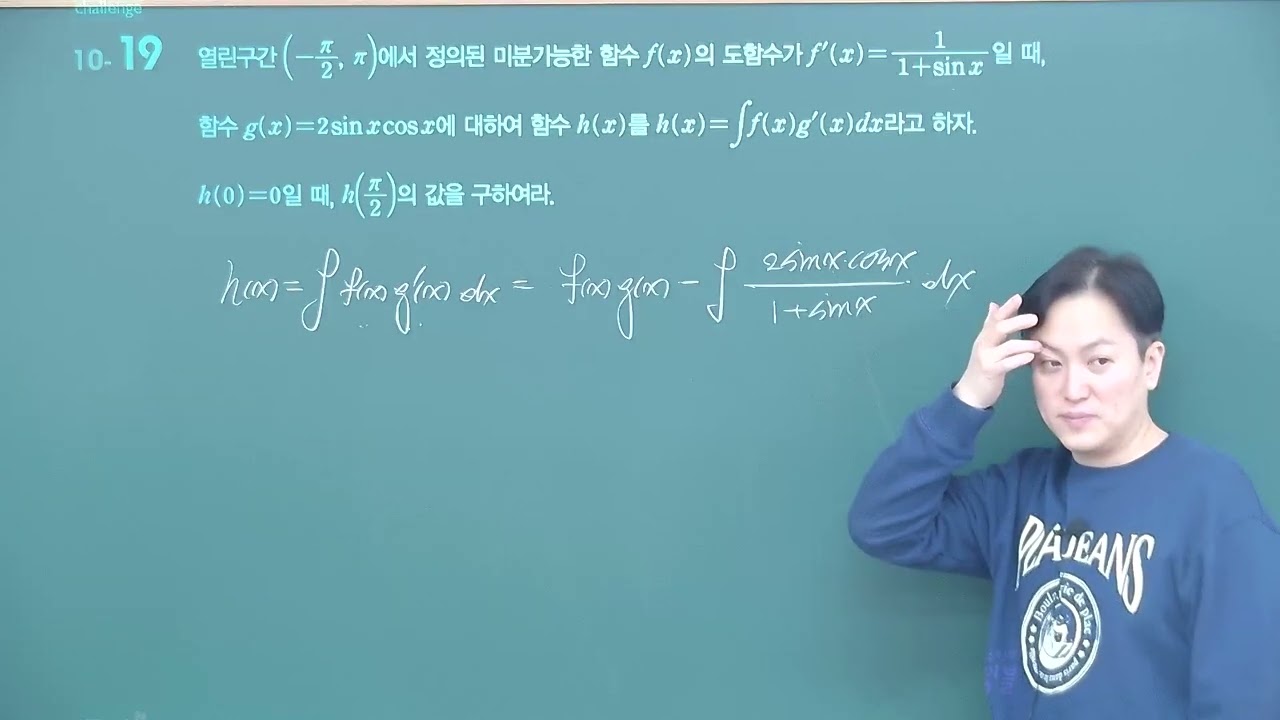 challenge
10-19 열린구간 (-π/2, π)에서 정의된 미분가능한 함수 f(x)의 도함수가 f′(x)=1/(1+sin x)일 때,
함수 g(x)=2sin x cos x에 대하여 함수 h(x)를 h(x)=∫f(x)g′(x)dx라고 하자.
h(0)=0일 때, h(π/2)의 값을 구하여라.
h(x)=∫f(x)g′(x)dx = f(x)g(x) - ∫ 2sinx·cosx/(1+sinx) · dx
PLAJEANS